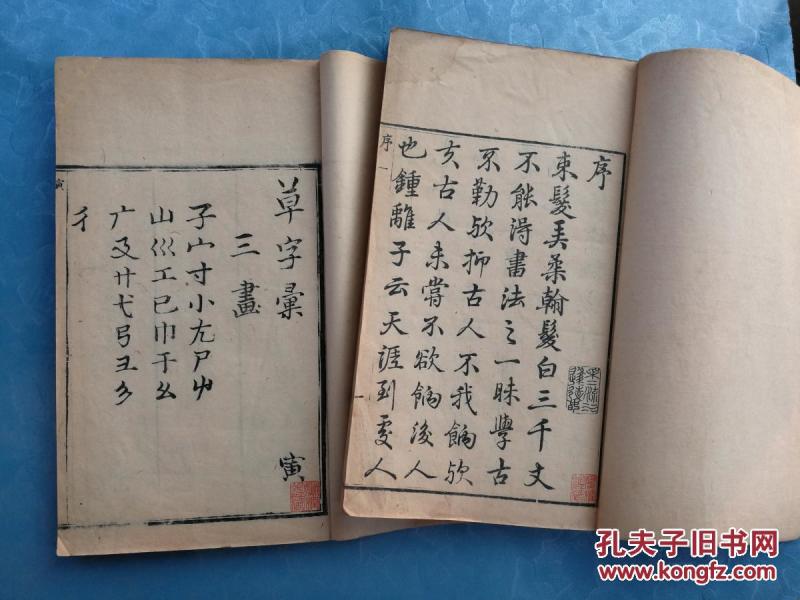 序
束髮美柔翰髮白三千丈
不能得書法之一昧學古
不勤欤抑古人不我餉欤
亥古人未嘗不欲餉後人
也鍾離子云天涯到處人
序 一
草字彙 寅
三畫
子宀寸小尢尸屮
山巛工己巾干幺
广廴廾弋弓彐彡
彳
寅
孔夫子旧书网
www.kongfz.com